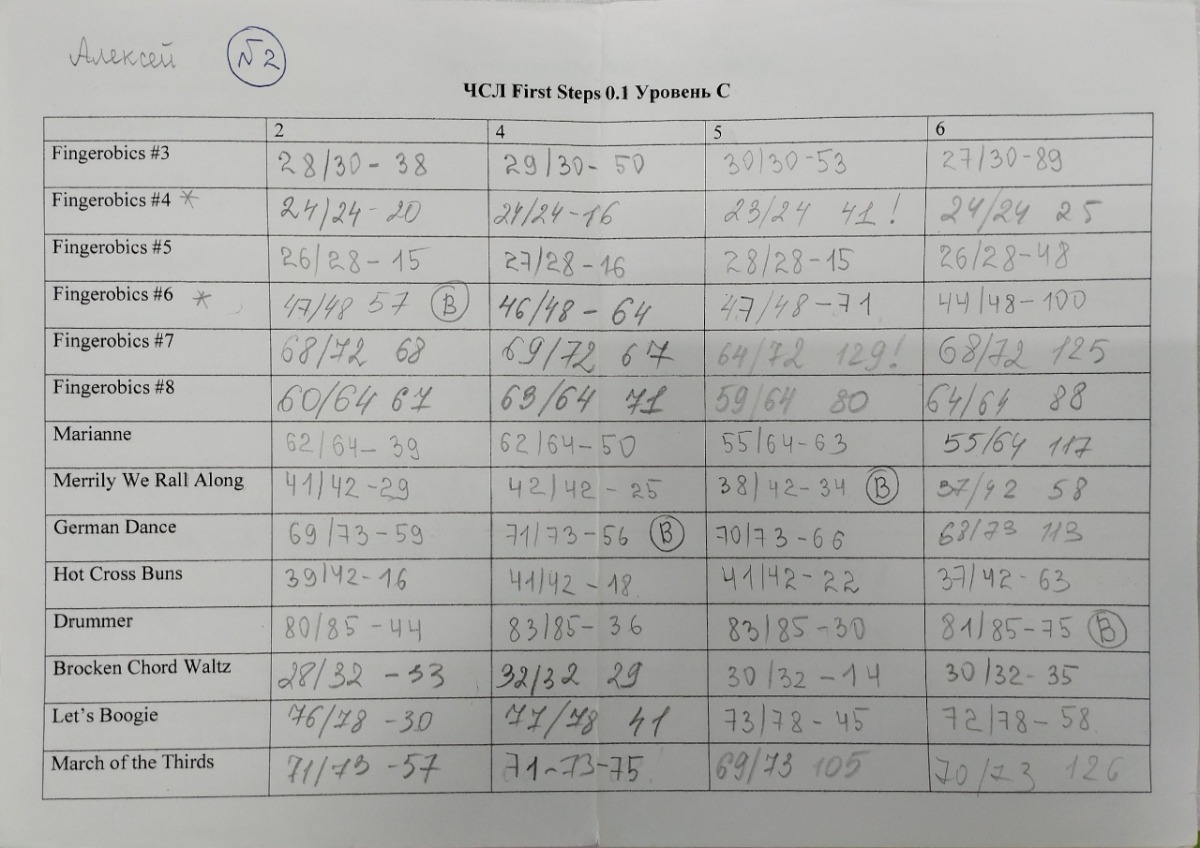 Алексей №2
ЧСЛ First Steps 0.1 Уровень С
2 4 5 6
Fingerobics #3 28/30 - 38 29/30 - 50 30/30 - 53 27/30 - 89
Fingerobics #4 * 24/24 - 20 24/24 - 16 23/24 41 ! 24/24 25
Fingerobics #5 26/28 - 15 27/28 - 16 28/28 - 15 26/28 - 48
Fingerobics #6 * 47/48 57 B 46/48 - 64 47/48 - 71 44/48 - 100
Fingerobics #7 68/72 68 69/72 67 64/72 129! 68/72 125
Fingerobics #8 60/64 67 63/64 71 59/64 80 64/64 88
Marianne 62/64 - 39 62/64 - 50 55/64 - 63 55/64 117
Merrily We Rall Along 41/42 - 29 42/42 - 25 38/42 - 34 B 37/42 58
German Dance 69/73 - 59 71/73 - 56 B 70/73 - 66 68/73 113
Hot Cross Buns 39/42 - 16 41/42 - 18 41/42 - 22 37/42 - 63
Drummer 80/85 - 44 83/85 - 36 83/85 - 30 81/85 - 75 B
Brocken Chord Waltz 28/32 - 33 32/32 29 30/32 - 14 30/32 - 35
Let's Boogie 76/78 - 30 77/78 41 73/78 - 45 72/78 - 58
March of the Thirds 71/73 - 57 71-73-75 69/73 105 70/73 126